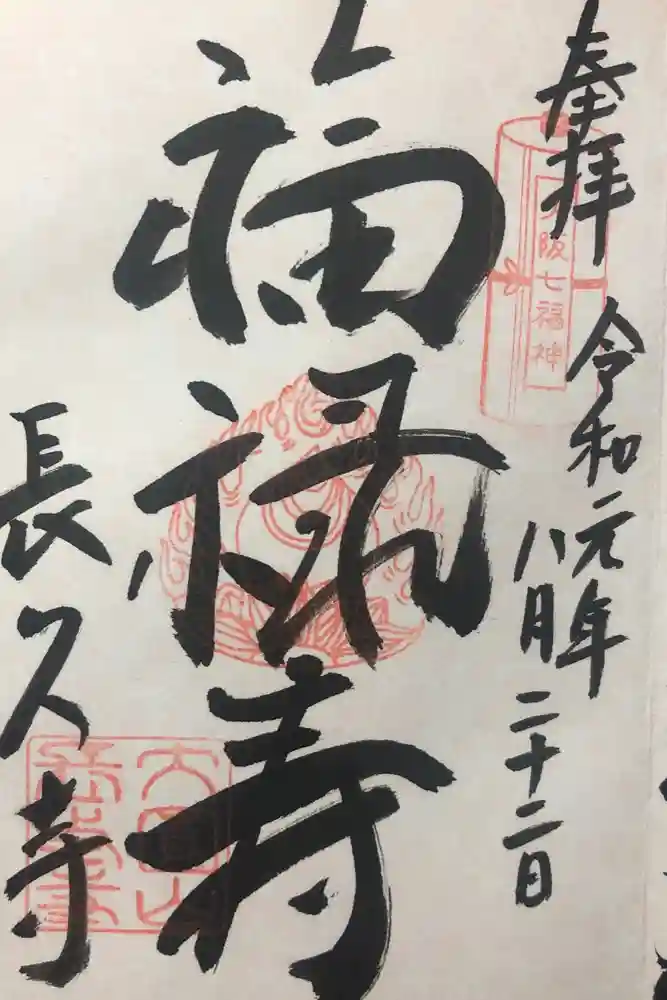 奉拝
令和元年
八月二十二日
大阪七福神
福禄寿
長久寺